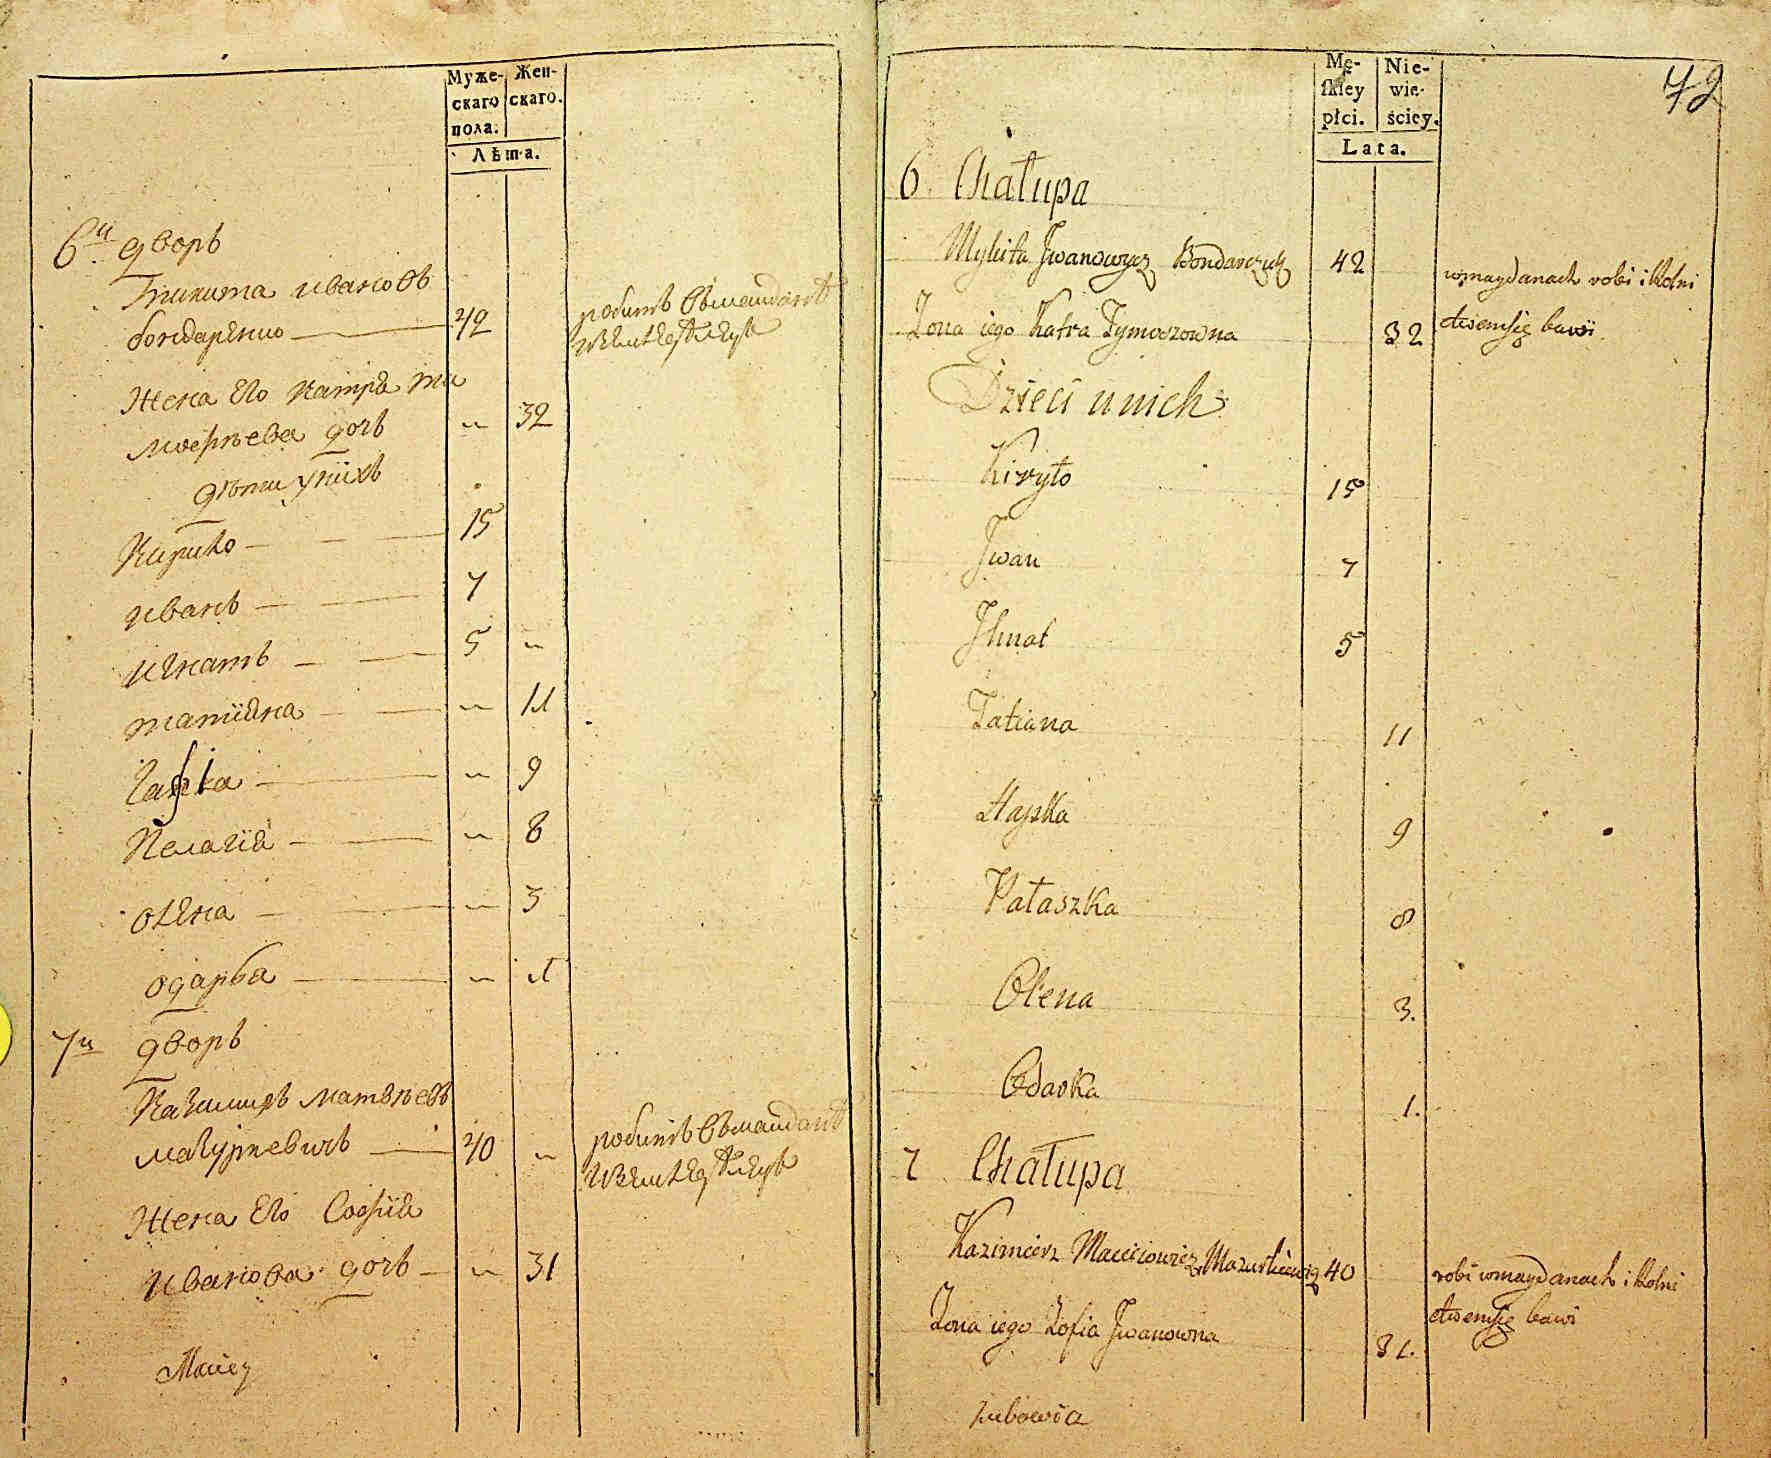 Муже-
скаго
пола.
Жен-
скаго.
Лѣта.
6й дворъ
Никита ивановъ
бондаренко 42
робитъ
Жена Его Катра ти
мофѣева дочь 32
дѣти унихъ
Кирило 15
иванъ 7
игнатъ 5
татиiана 11
Гапка 9
Пелагiя 8
олена 3
одарка 1
7й дворъ
Казимиръ матвѣевъ
мазуркевичъ 40
робитъ
Жена Его Софiя
иванова дочь 31
Maciey
72
Mę-
skiey
płci.
Nie-
wie-
ściey.
Lata.
6 Chałupa
Mykita Jwanowycz Bondarczuk 42
wmaydanach robi i Rolni
ctwemsię bawi
Żona iego Katra Tymoszowna 32
Dzieci unich
Kiryło 15
Jwan 7
Jhnat 5
Tatiana 11
Hapka 9
Pałaszka 8
Olena 3.
Odarka 1.
7 Chałupa
Kazimierz Macieiowicz Mazurkiewicz 40
robi wmaydanach i Rolni
ctwemsię bawi
Żona iego Zofia Jwanowna 31.